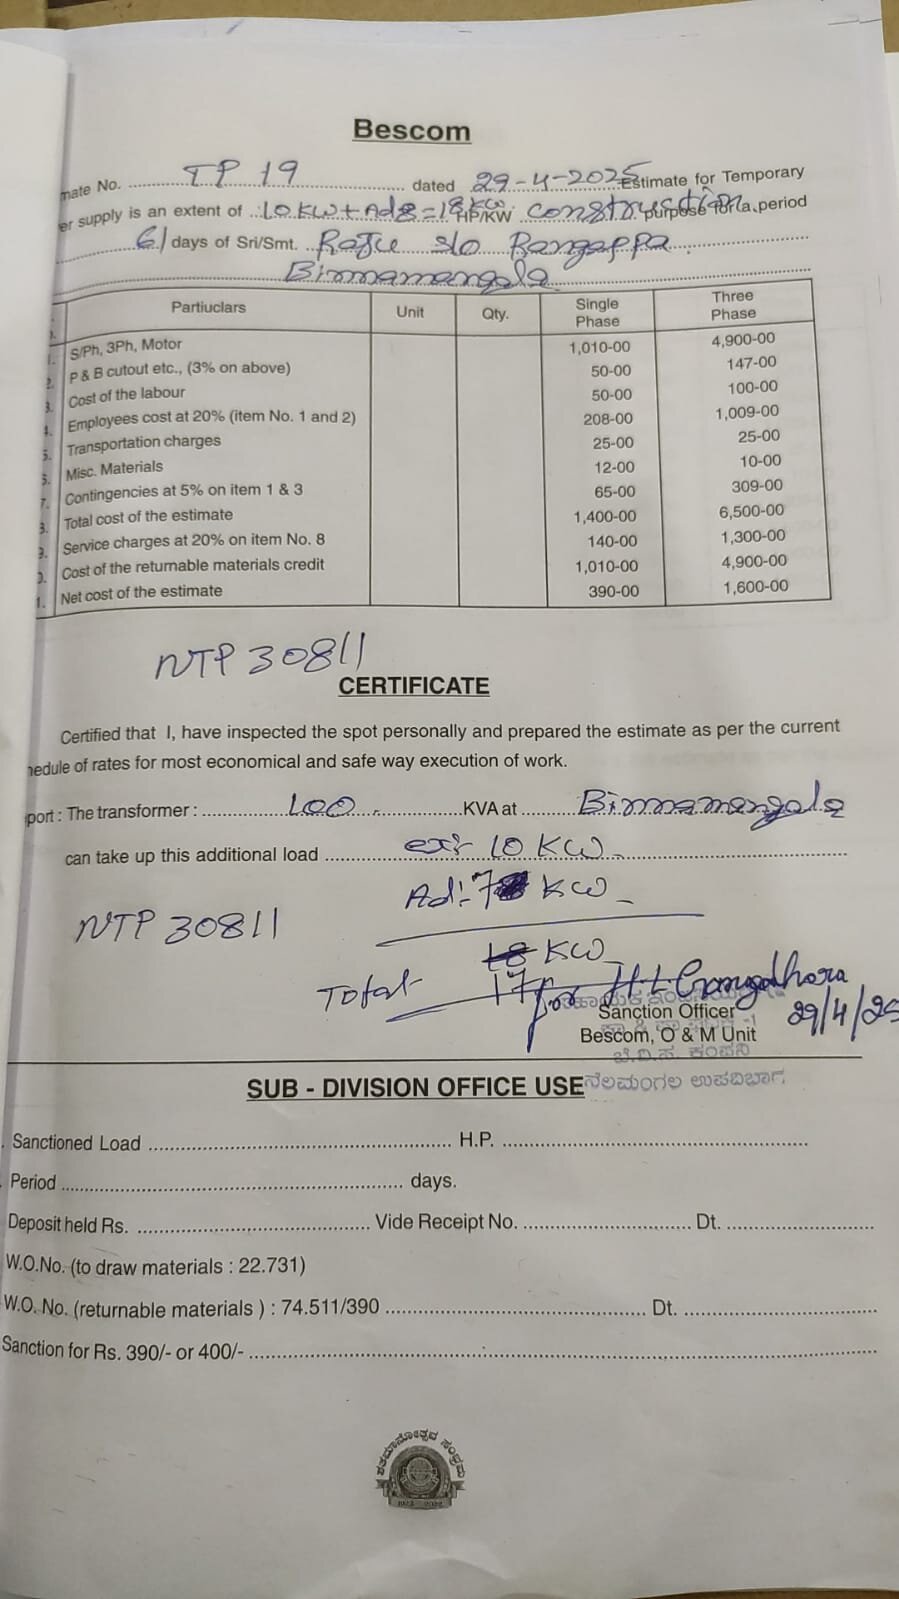 Bescom
mate No. TP 19 dated 29-4-2025 Estimate for Temporary
er supply is an extent of 10 KW + Ad 8 = 18 KW HP/KW construction purpose for a period
61 days of Sri/Smt. Raju s/o Rangappa
Binnamangala
Partiuclars Unit Qty. Single Phase Three Phase
1. S/Ph, 3Ph, Motor 1,010-00 4,900-00
2. P & B cutout etc., (3% on above) 50-00 147-00
3. Cost of the labour 50-00 100-00
4. Employees cost at 20% (item No. 1 and 2) 208-00 1,009-00
5. Transportation charges 25-00 25-00
6. Misc. Materials 12-00 10-00
7. Contingencies at 5% on item 1 & 3 65-00 309-00
8. Total cost of the estimate 1,400-00 6,500-00
9. Service charges at 20% on item No. 8 140-00 1,300-00
0. Cost of the returnable materials credit 1,010-00 4,900-00
1. Net cost of the estimate 390-00 1,600-00
NTP 30811
CERTIFICATE
Certified that I, have inspected the spot personally and prepared the estimate as per the current
hedule of rates for most economical and safe way execution of work.
port : The transformer : 100 KVA at Binnamangala
can take up this additional load exi- 10 KW
Ad:- 7 KW
NTP 30811
18 KW
Total 17
for H.L Gangadhara
Sanction Officer 29/4/25
Bescom, O & M Unit
ಬೆ.ವಿ.ಸ. ಕಂಪನಿ
SUB - DIVISION OFFICE USE ನೆಲಮಂಗಲ ಉಪವಿಭಾಗ
Sanctioned Load H.P.
Period days.
Deposit held Rs. Vide Receipt No. Dt.
W.O.No. (to draw materials : 22.731)
W.O. No. (returnable materials ) : 74.511/390 Dt.
Sanction for Rs. 390/- or 400/-
ಶತಮಾನೋತ್ಸವ ಸಂಭ್ರಮ